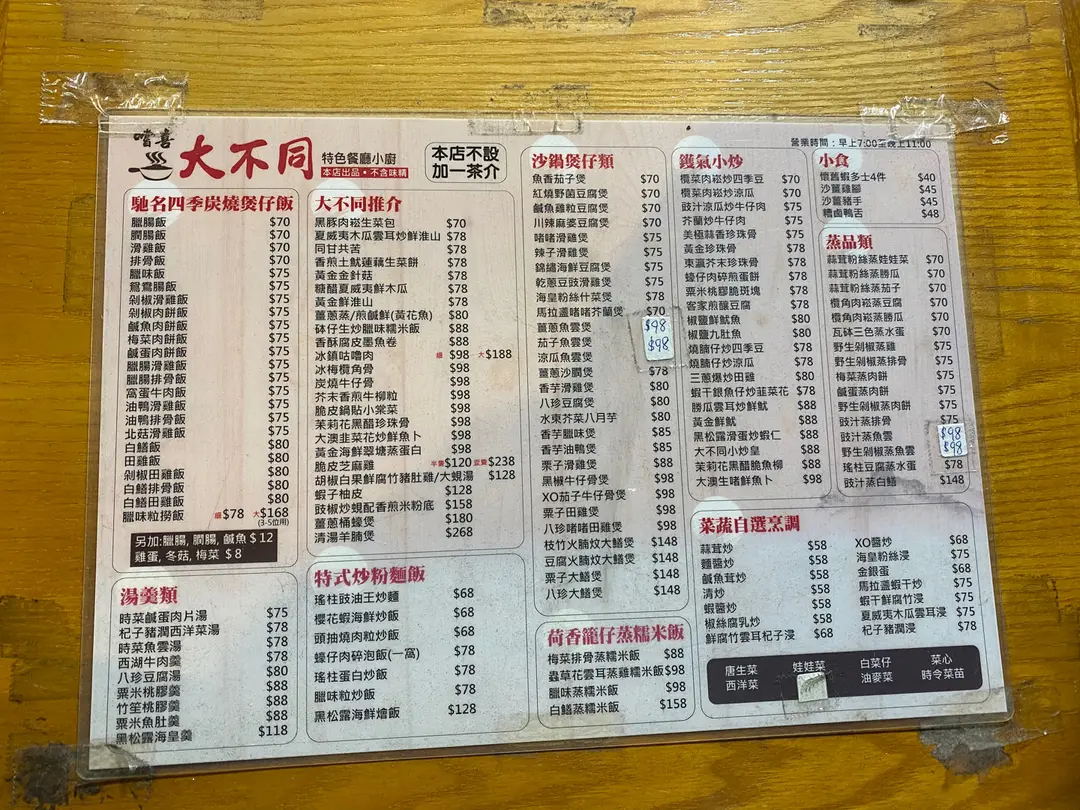 嚐喜
大不同
特色餐廳小廚
本店出品•不含味精
本店不設
加一茶介
營業時間：早上7:00至晚上11:00
馳名四季炭燒煲仔飯
臘腸飯 $70
膶腸飯 $70
滑雞飯 $70
排骨飯 $70
臘味飯 $75
鴛鴦腸飯 $75
剁椒滑雞飯 $75
剁椒肉餅飯 $75
鹹魚肉餅飯 $75
梅菜肉餅飯 $75
鹹蛋肉餅飯 $75
臘腸滑雞飯 $75
臘腸排骨飯 $75
窩蛋牛肉飯 $75
油鴨滑雞飯 $75
油鴨排骨飯 $75
北菇滑雞飯 $75
白鱔飯 $80
田雞飯 $80
剁椒田雞飯 $80
白鱔排骨飯 $80
白鱔田雞飯 $80
臘味粒撈飯 細$78 大$168
(3-5位用)
另加:臘腸, 膶腸, 鹹魚 $12
雞蛋, 冬菇, 梅菜 $8
湯羹類
時菜鹹蛋肉片湯 $75
杞子豬潤西洋菜湯 $78
時菜魚雲湯 $78
西湖牛肉羹 $78
八珍豆腐湯 $80
粟米桃膠羹 $88
竹笙桃膠羹 $88
粟米魚肚羹 $88
黑松露海皇羹 $118
大不同推介
黑豚肉崧生菜包 $70
夏威夷木瓜雲耳炒鮮淮山 $78
同甘共苦 $78
香煎土魷蓮藕生菜餅 $78
黃金金針菇 $78
糖醋夏威夷鮮木瓜 $78
黃金鮮淮山 $78
薑蔥蒸/煎鹹鮮(黃花魚) $80
砵仔生炒臘味糯米飯 $88
香酥腐皮墨魚卷 $88
冰鎮咕嚕肉 細$98 大$188
冰梅欖角骨 $98
炭燒牛仔骨 $98
芥末香煎牛柳粒 $98
脆皮鍋貼小棠菜 $98
茉莉花黑醋珍珠骨 $98
大澳韭菜花炒鮮魚卜 $98
黃金海鮮翠塘蒸蛋白 $98
脆皮芝麻雞 半隻$120 壹隻$238
胡椒白果鮮腐竹豬肚雞/大蜆湯 $128
蝦子柚皮 $128
豉椒炒蜆配香煎米粉底 $158
薑蔥桶蠔煲 $180
清湯羊腩煲 $268
特式炒粉麵飯
瑤柱豉油王炒麵 $68
櫻花蝦海鮮炒飯 $68
頭抽燒肉粒炒飯 $68
蠔仔肉碎泡飯(一窩) $78
瑤柱蛋白炒飯 $78
臘味粒炒飯 $78
黑松露海鮮燴飯 $128
沙鍋煲仔類
魚香茄子煲 $70
紅燒野菌豆腐煲 $70
鹹魚雞粒豆腐煲 $70
川辣麻婆豆腐煲 $70
啫啫滑雞煲 $75
辣子滑雞煲 $75
錦繡海鮮豆腐煲 $75
乾蔥豆豉滑雞煲 $75
海皇粉絲什菜煲 $78
馬拉盞啫啫芥蘭煲 $70
薑蔥魚雲煲 $98
茄子魚雲煲 $98
涼瓜魚雲煲
薑蔥沙膶煲 $78
香芋滑雞煲 $80
八珍豆腐煲 $80
水東芥菜八月芋 $80
香芋臘味煲 $85
香芋油鴨煲 $85
栗子滑雞煲 $88
黑椒牛仔骨煲 $98
XO茄子牛仔骨煲 $98
栗子田雞煲 $98
八珍啫啫田雞煲 $98
枝竹火腩炆大鱔煲 $148
豆腐火腩炆大鱔煲 $148
栗子大鱔煲 $148
八珍大鱔煲 $148
荷香籠仔蒸糯米飯
梅菜排骨蒸糯米飯 $88
蟲草花雲耳蒸雞糯米飯 $98
臘味蒸糯米飯 $98
白鱔蒸糯米飯 $158
鑊氣小炒
欖菜肉崧炒四季豆 $70
欖菜肉崧炒涼瓜 $70
豉汁涼瓜炒牛仔肉 $75
芥蘭炒牛仔肉 $75
美極蒜香珍珠骨 $75
黃金珍珠骨 $78
東瀛芥末珍珠骨 $78
蠔仔肉碎煎蛋餅 $78
粟米桃膠脆斑塊 $78
客家煎釀豆腐 $78
椒鹽鮮魷魚 $80
椒鹽九肚魚 $80
燒腩仔炒四季豆 $78
燒腩仔炒涼瓜 $78
三蔥爆炒田雞 $80
蝦干銀魚仔炒韮菜花 $78
勝瓜雲耳炒鮮魷 $88
黃金鮮魷 $88
黑松露滑蛋炒蝦仁 $88
大不同小炒皇 $88
茉莉花黑醋脆魚柳 $88
大澳生啫鮮魚卜 $98
小食
懷舊蝦多士4件 $40
沙薑雞腳 $45
沙薑豬手 $45
糟鹵鴨舌 $48
蒸品類
蒜茸粉絲蒸娃娃菜 $70
蒜茸粉絲蒸勝瓜 $70
蒜茸粉絲蒸茄子 $70
欖角肉崧蒸豆腐 $70
欖角肉崧蒸勝瓜 $70
瓦砵三色蒸水蛋 $70
野生剁椒蒸雞 $75
野生剁椒蒸排骨 $75
梅菜蒸肉餅 $75
鹹蛋蒸肉餅 $75
野生剁椒蒸肉餅 $75
豉汁蒸排骨 $75
豉汁蒸魚雲 $98
野生剁椒蒸魚雲 $98
瑤柱豆腐蒸水蛋 $78
豉汁蒸白鱔 $148
菜蔬自選烹調
蒜茸炒 $58
麵醬炒 $58
鹹魚茸炒 $58
清炒 $58
蝦醬炒 $58
椒絲腐乳炒 $58
鮮腐竹雲耳杞子浸 $68
XO醬炒 $68
海皇粉絲浸 $75
金銀蛋 $68
馬拉盞蝦干炒 $75
蝦干鮮腐竹浸 $75
夏威夷木瓜雲耳浸 $75
杞子豬潤浸 $78
唐生菜 娃娃菜 白菜仔 菜心
西洋菜 油麥菜 時令菜苗